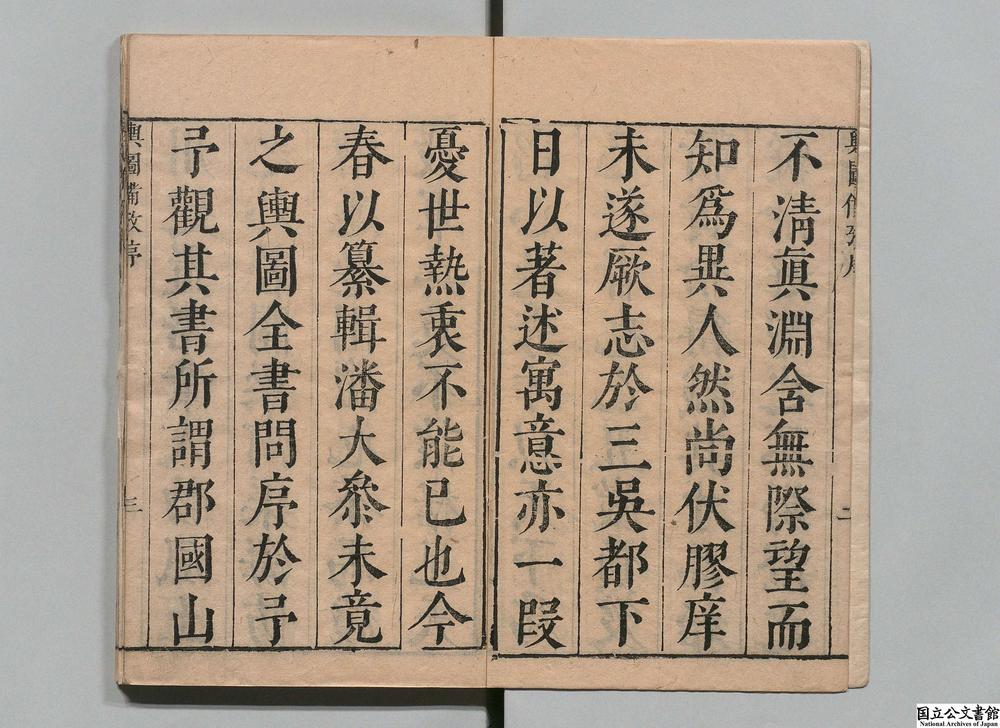 不清真淵含無際望而
知為異人然尚伏膠庠
未遂厥志於三吳都下
日以著述寓意亦一段
憂世熱衷不能已也今
春以纂輯潘大叅未竟
之輿圖全書問序於予
予觀其書所謂郡國山
輿圖備攷序
三
二
国立公文書館
National Archives of Japan